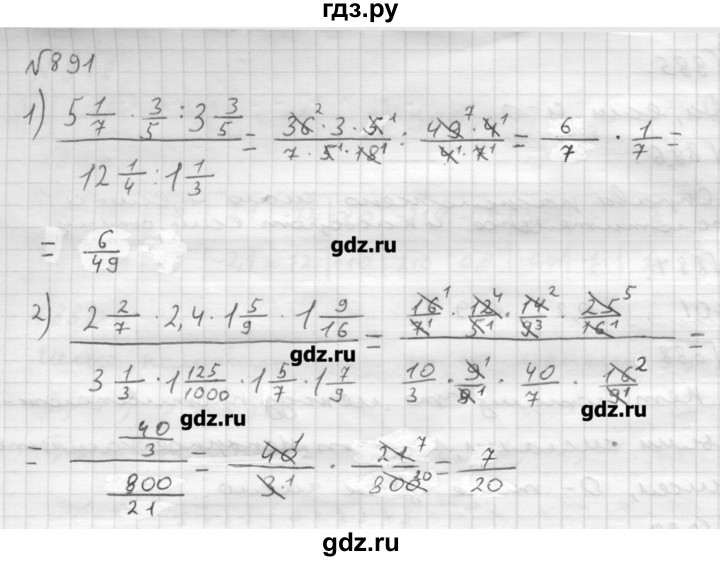 гдз.ру
№891
1) (5 1/7 · 3/5 : 3 3/5) / (12 1/4 : 1 1/3) = (36² · 3 · 5¹) / (7 · 5¹ · 18¹) : (49⁷ · 4¹) / (4¹ · 7¹) = 6/7 · 1/7 =
= 6/49
gdz.ru
2) (2 2/7 · 2,4 · 1 5/9 · 1 9/16) / (3 1/3 · 1 125/1000 · 1 5/7 · 1 7/9) = (16¹/7¹ · 12⁴/5¹ · 14²/9³ · 25⁵/16¹) / (10/3 · 9¹/8¹ · 40/7 · 16²/9¹) =
gdz.ru
gdz.ru
gdz.ru
= (40/3) / (800/21) = 40¹/3¹ · 21⁷/800²⁰ = 7/20
gdz.ru
gdz.ru
gdz.ru